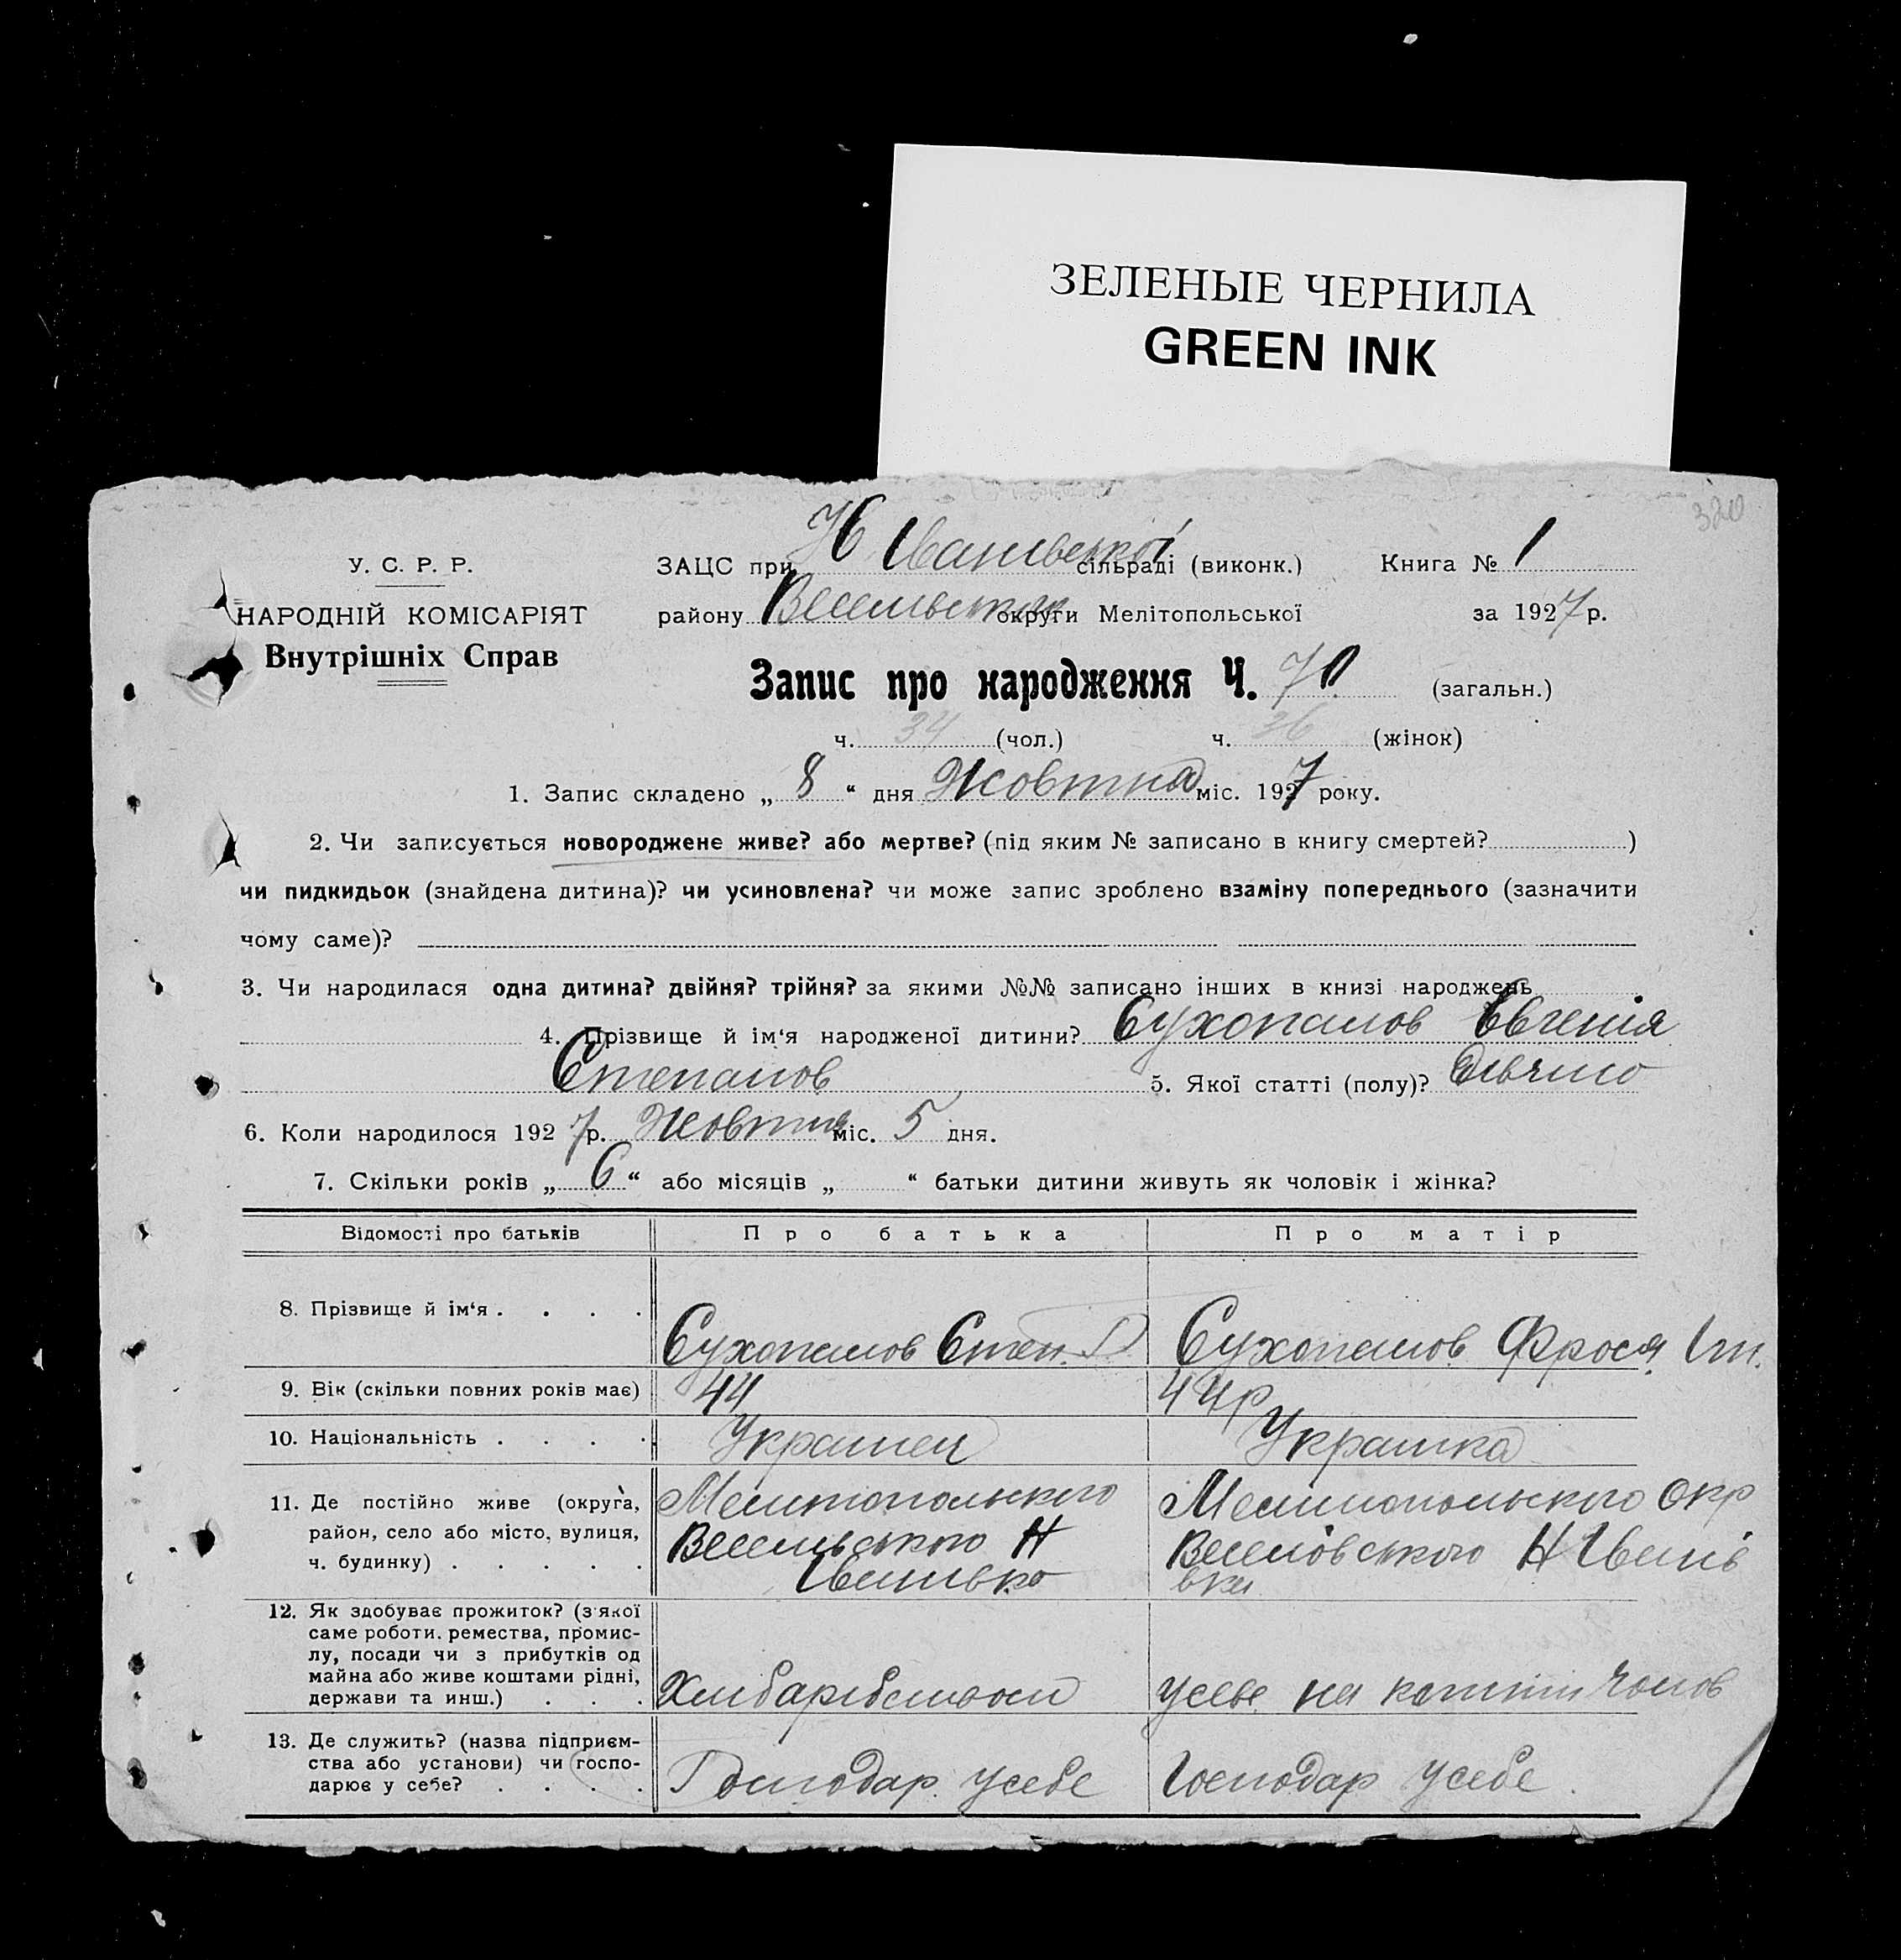 ЗЕЛЕНЫЕ ЧЕРНИЛА
GREEN INK
320
У. С. Р. Р.
НАРОДНІЙ КОМІСАРІЯТ
Внутрішніх Справ
ЗАЦС при Н Іванівській сільраді (виконк.) Книга № 1
району округи Мелітопольської за 1927 р.
Запис про народження Ч. 70 (загальн.)
ч. 34 (чол.) ч. 36 (жінок)
1. Запис складено „ 8 “ дня Жовтня міс. 1927 року.
2. Чи записується новороджене живе? або мертве? (під яким № записано в книгу смертей? )
чи пидкидьок (знайдена дитина)? чи усиновлена? чи може запис зроблено взаміну попереднього (зазначити
чому саме)?
3. Чи народилася одна дитина? двійня? трійня? за якими №№ записано інших в книзі народжень
4. Прізвище й ім‘я народженої дитини? Сухопалов Евгенія
Степанов 5. Якої статті (полу)? Дівчина
6. Коли народилося 1927 р. Жовтня міс. 5 дня.
7. Скільки років „ 6 “ або місяців „ “ батьки дитини живуть як чоловік і жінка?
Відомості про батьків Про батька Про матір
8. Прізвище й ім‘я . . . . Сухопалов Степ. Сухопалов Фрося
9. Вік (скільки повних років має) 44 44р
10. Національність . . . . Украінец Украінка
11. Де постійно живе (округа, Мелітопольского Мелітопольского Окр
район, село або місто, вулиця, Веселівського Н Веселовського Н Івані
ч. будинку) . . . . . Іванівка вка
12. Як здобуває прожиток? (з якої
саме роботи. ремества, промис-
лу, посади чи з прибутків од
майна або живе коштами рідні,
держави та инш.) . . . на кошти чолов
13. Де служить? (назва підприєм-
ства або установи) чи госпо-
дарює у себе? . . . . Господар усебе Господар усебе